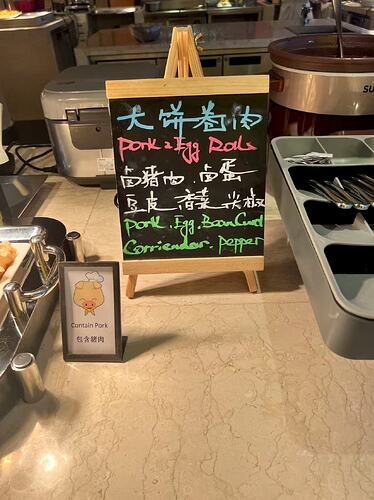 大饼卷肉
Pork & Egg Rolls
卤猪肉.卤蛋
豆皮 香菜 尖椒
Pork.Egg.BeanCurd
Corriender.Pepper
Contain Pork
包含猪肉
SU